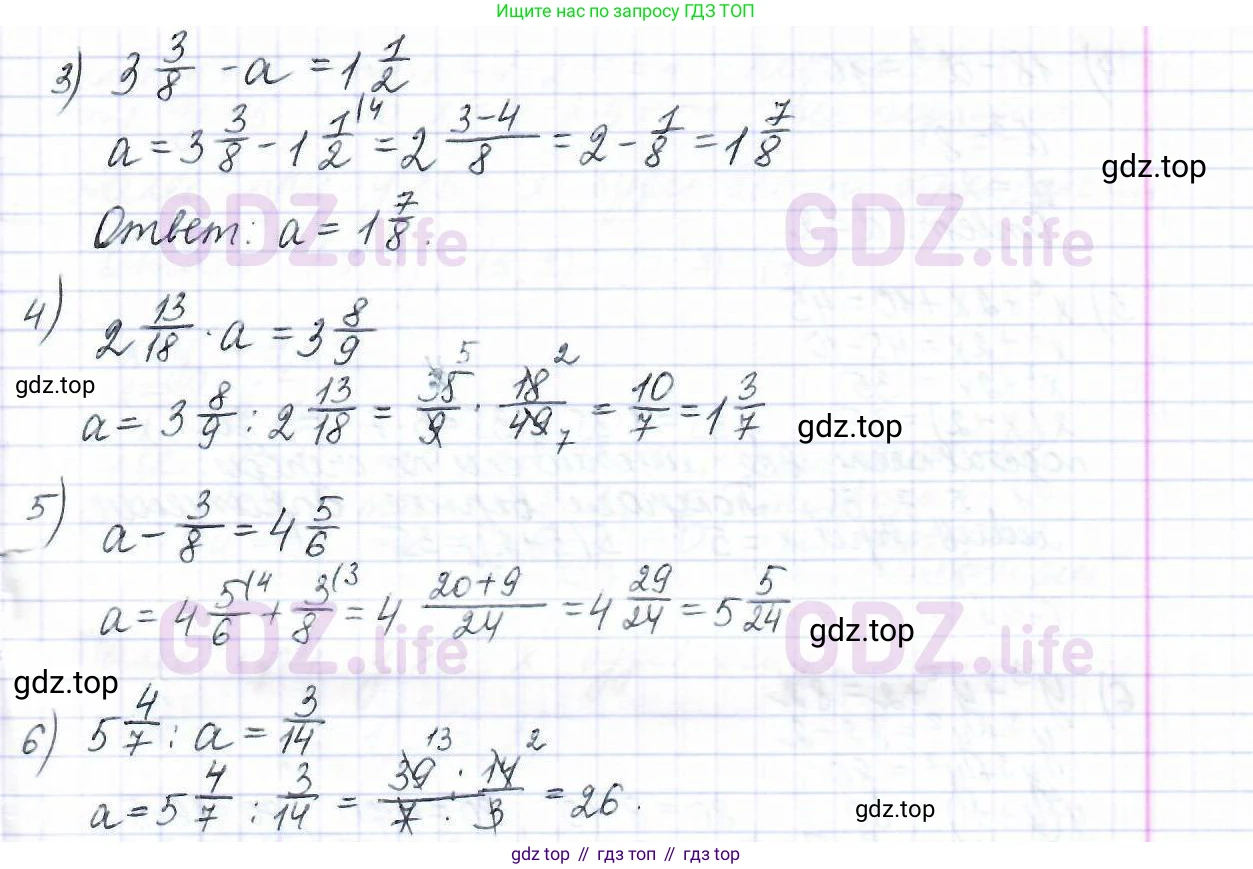 Ищите нас по запросу ГДЗ ТОП
3) 3 3/8 - a = 1 1/2
a = 3 3/8 - 1 1/2 (4 = 2 3-4/8 = 2 - 1/8 = 1 7/8
gdz.top
Ответ: a = 1 7/8.
GDZ.life GDZ.life
4) 2 13/18 · a = 3 8/9
gdz.top
a = 3 8/9 : 2 13/18 = 35/9 · 18/49 = 10/7 = 1 3/7
5 2 7
gdz.top
5) a - 3/8 = 4 5/6
a = 4 5/6 (4 + 3/8 (3 = 4 20+9/24 = 4 29/24 = 5 5/24
GDZ.life GDZ.life
gdz.top
gdz.top
6) 5 4/7 : a = 3/14
a = 5 4/7 : 3/14 = 39 · 14/7 · 3 = 26.
13 2
gdz.top
gdz top // гдз топ // gdz top